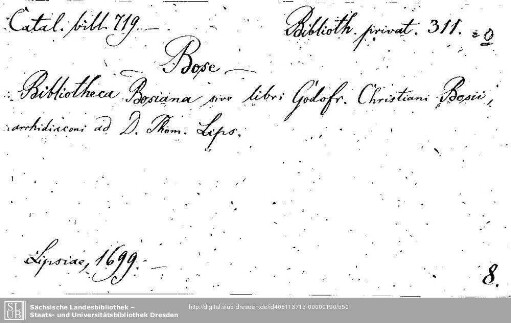 Catal. bibl. 719.
Biblioth. privat. 311.
Bose
Bibliotheca Bosiana sive libri Godofr. Christiani Bosii,
archidiaconi ad D. Thom. Lips.
Lipsiae, 1699.
8.
Sächsische Landesbibliothek –
Staats- und Universitätsbibliothek Dresden